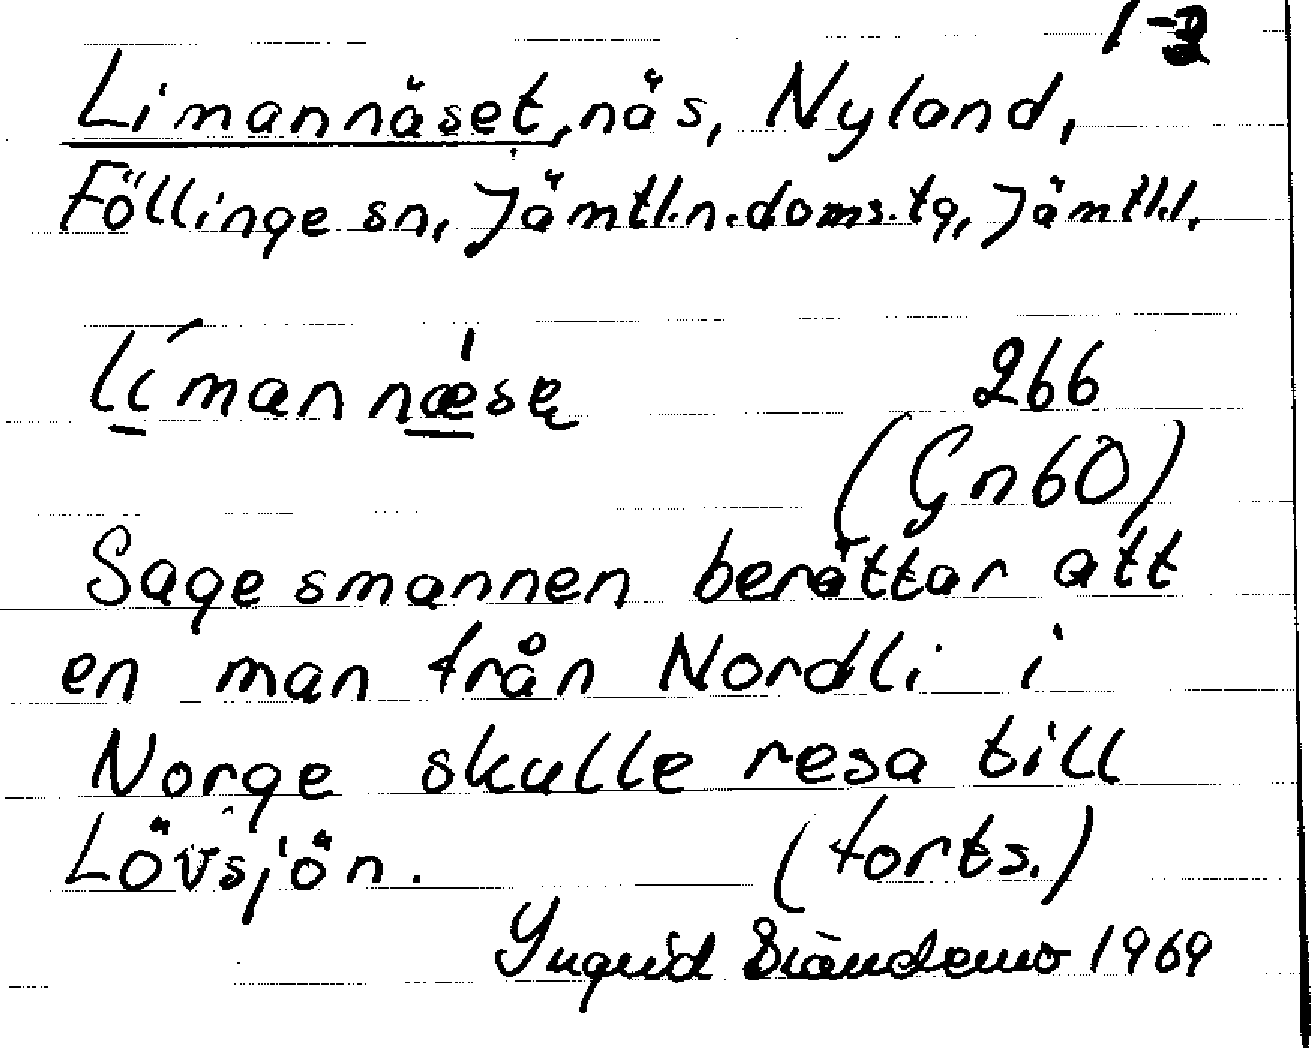 1-3
Limannäset, näs, Nyland,
Föllinge sn, Jämtl.n.doms.tg, Jämtl.l.
límannǽsę 266
(Gn60)
Sagesmannen berättar att
en man från Nordli i
Norge skulle resa till
Lövsjön. (forts.)
Yngvid Brändemo 1969